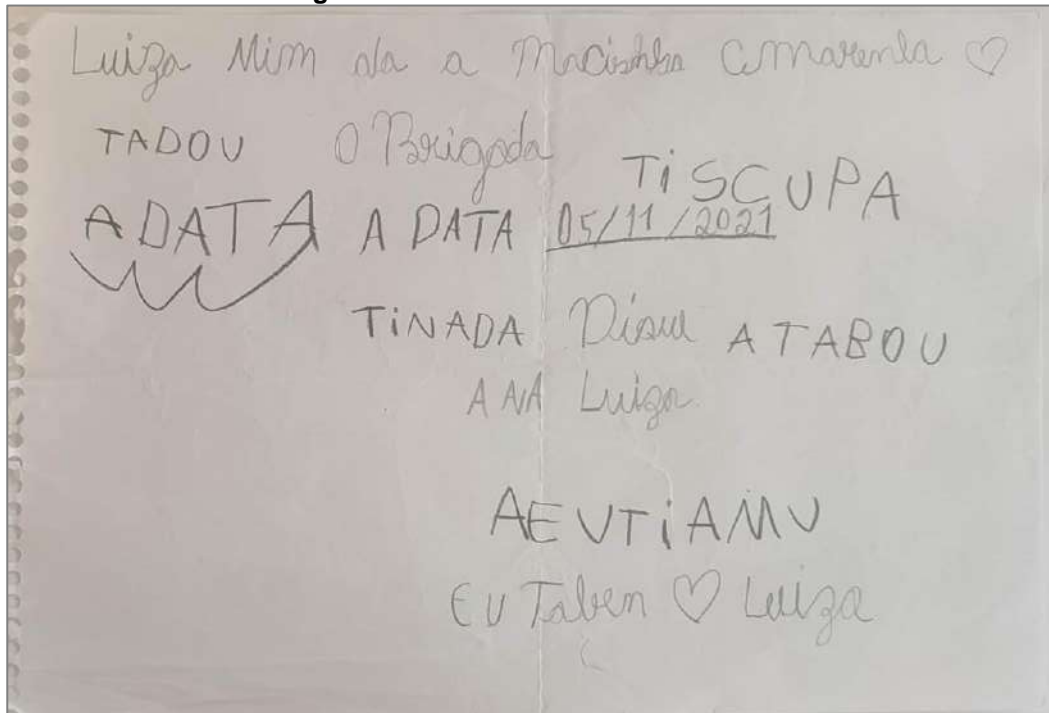 Luiza Mim da a Macinha amarenla ♡
TADOU O Brigada TiSCUPA
ADATA A DATA 05/11/2021
TiNADA Disul ATABOU
ANA Luiza
AEUTiAMU
EU Taben ♡ Luiza